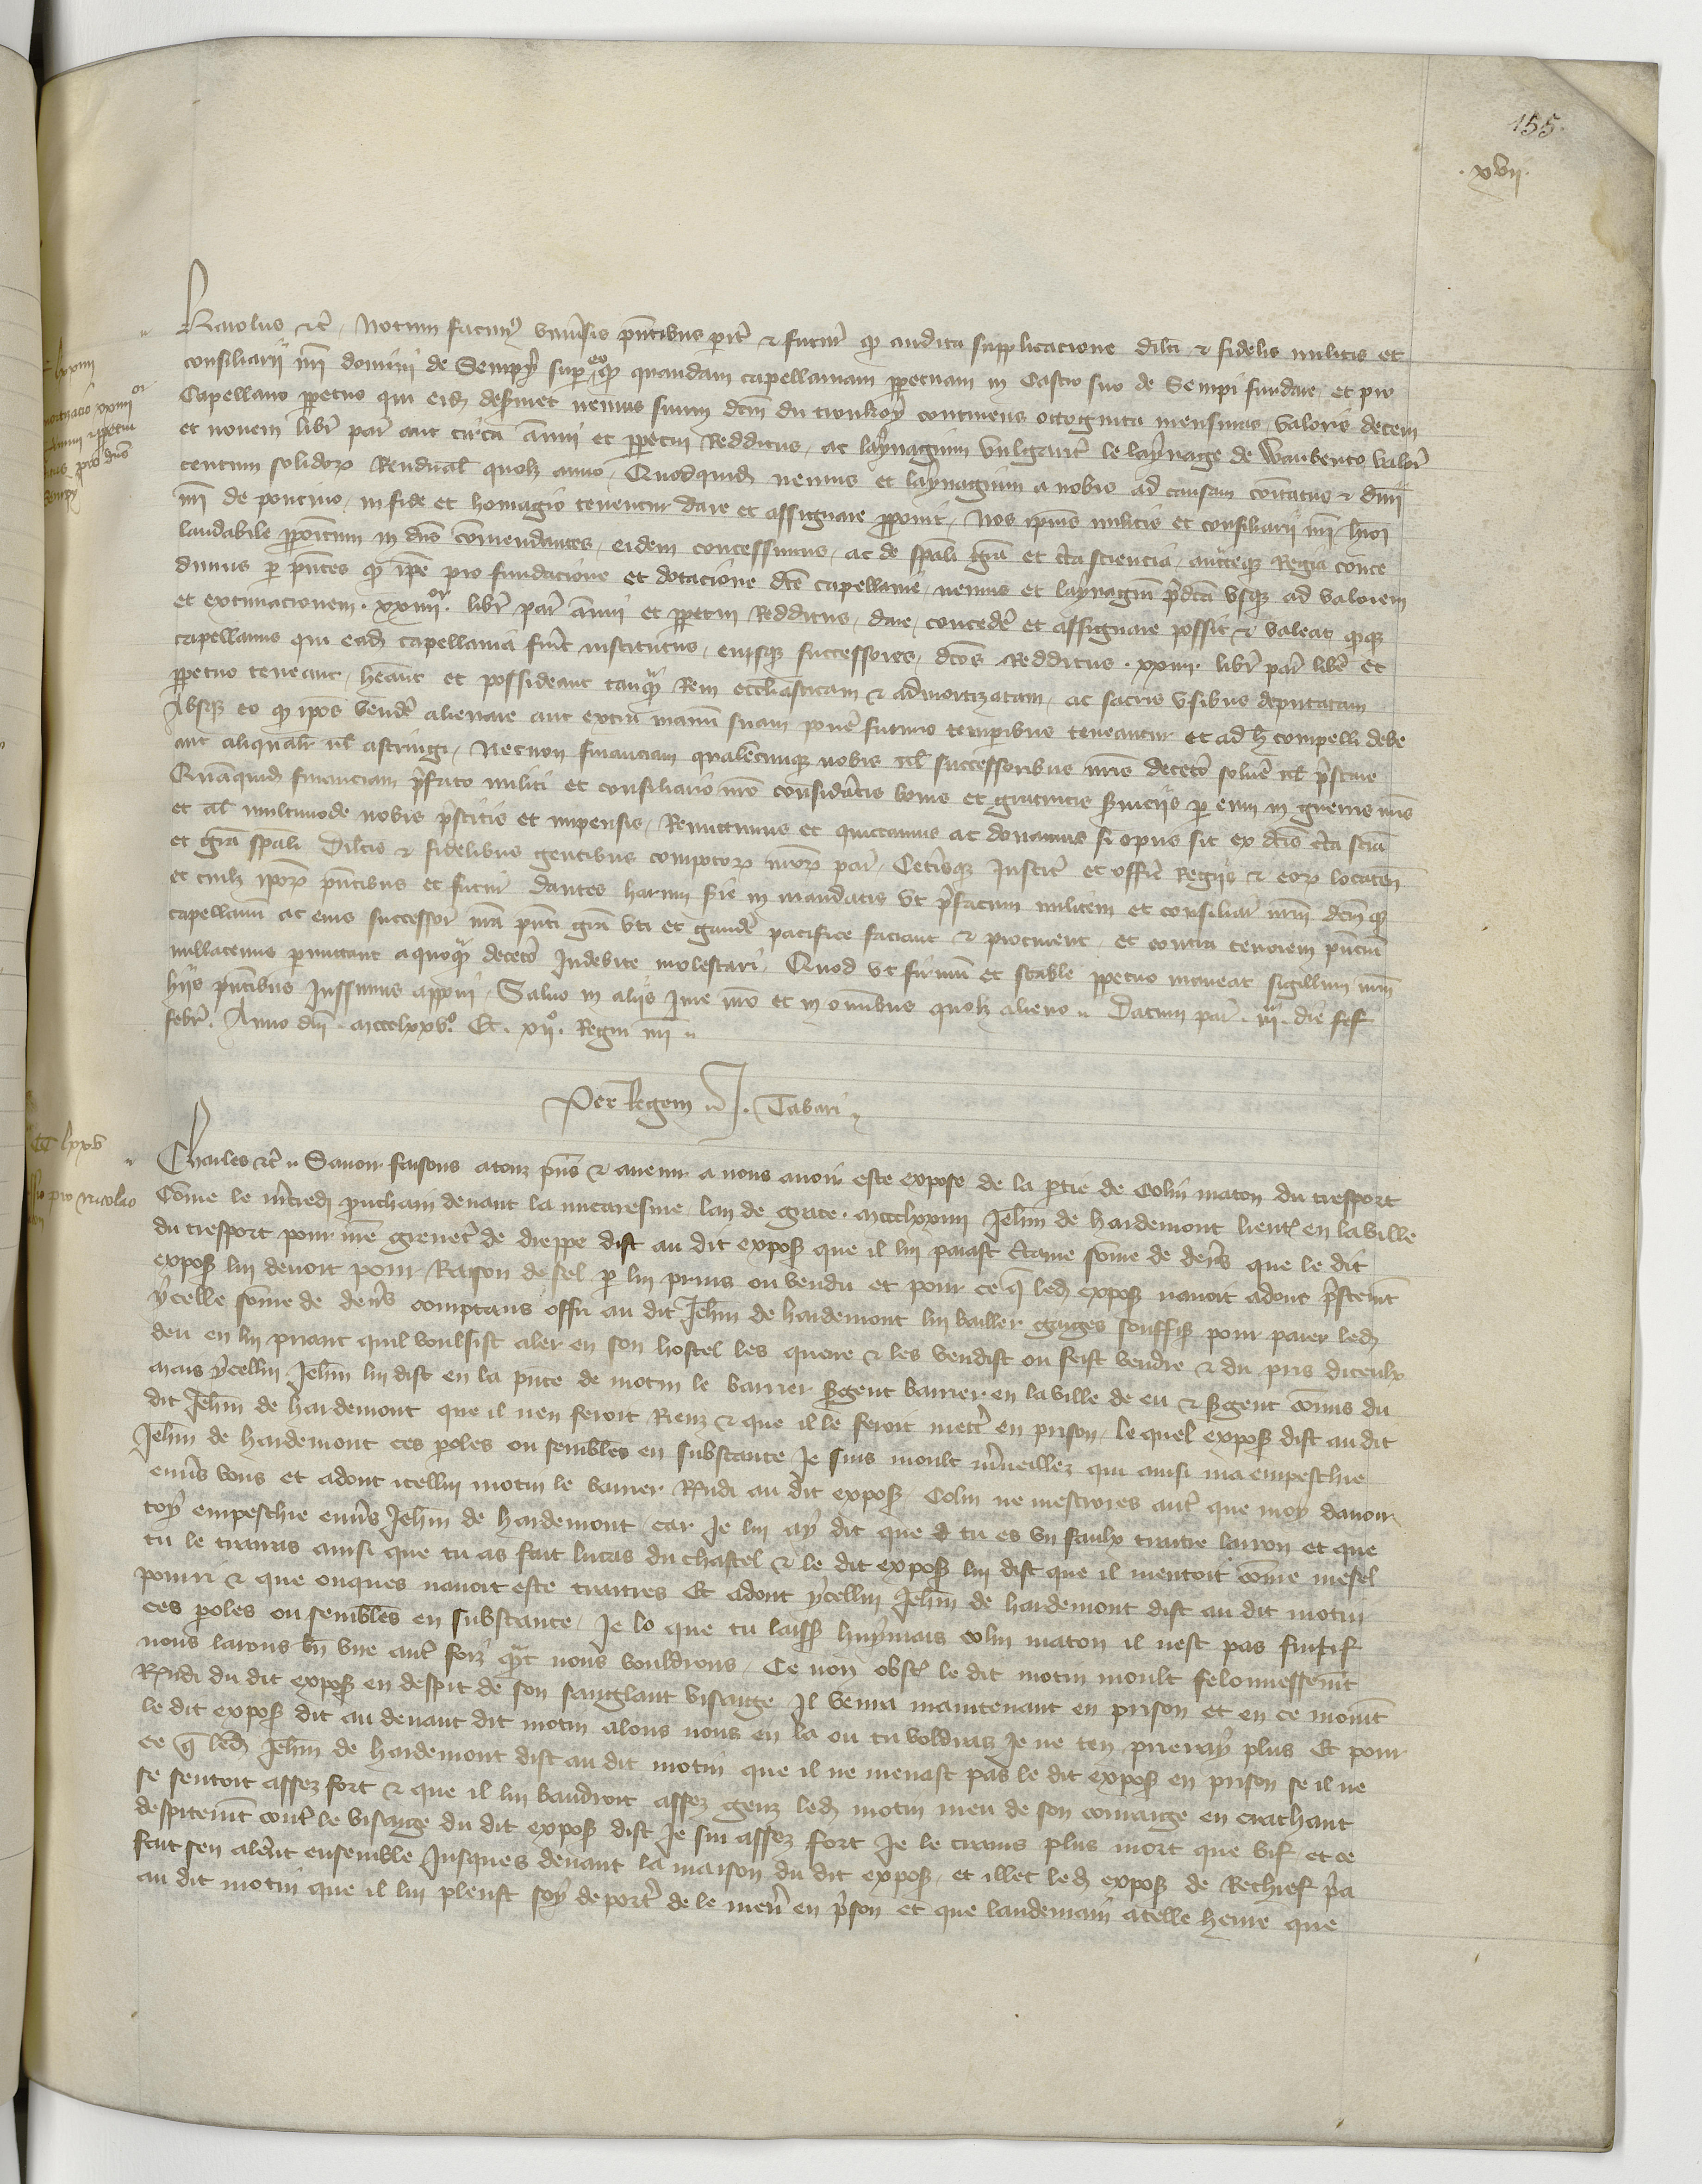 155.
.xvii.
Karolus etc. Notum facimus universis pñtibus pariter & futuris qd audita supplicacione dilcti & fidelis militis et
consiliarii nri domini de Sempy super eo qd quandam capellaniam ppetuam in Castro suo de Sempi fundare, et pro
Capellano ppetuo qui eidem deserviet nemus suum dictum du tronkoy continens octoginta mensuras, valoris decem
et novem libr par aut circa annui et ppetui Redditus, ac laynagium vulgariter le laynage de Wanbento valoris
centum solidorum Rendual quolibet anno, Quodquid nemus et laynagium a nobis ad causam comitatus & dñii
nri de pontivo, in fide et homagio tenentur dare et assignare pponit, Nos ipius militis et consiliarii nri huiusmodi
laudabile ppoitum in dño comendantes, eidem concessimus, ac de spali gra et certa sciencia, aucteque Regia conce
dimus per pñtes qd ipe pro fundacione et dotacione dicte capellanie, nemus et laynagium predictam usque ad valorem
et extimacionem .xxiiii or. libr par annui et ppetui Redditus, dare, concedere et assignare possit & valeat qdque
capellanus qui eadem capellania fuerit institutus, eiusque successores, dictos Redditus .xxiiii. libr par libere et
ppetuo teneant, heant et possideant tanquam Rem ecclesiasticam & admortizatam, ac sacris usibus deputatam
Absque eo qd ipos vendere alienare aut extra manum suam ponere futuris temporibus teneantur et ad hoc compelli debe
ant aliqualiter vel astringi, Necnon financiam qualemcunque nobis vel successoribus nris decetero solvere vel prestare
Quamquid financiam prefato militi et consiliario nro consideratis bonis et gratuitis serviciis per eum in guerris nris
et al multimode nobis prestitis et impensis, Remittimus et quictamus ac donamus si opus sit ex dictis certa scia
et gra spali Dilctis & fidelibus gentibus compotorum nrorum par, Ceterisque Justic et offic Regiis & eorum locaten
et cuilibet ipsorum pñtibus et futuris dantes harum serie in mandatis ut prefatum militem et consiliarium nrum dictumque
capellanum ac eius successores nra pñti gra uti et gaudere pacifice faciant & procurent, et contra tenorem pñtium
nullatenus permittant a quoquam decetero Indebite molestari, Quod ut firmum et stabile ppetuo maneat sigillum nrum
hiis pñtibus Jussimus apponi, Salvo in aliis Jure nro et in omnibus quolibet alieno. Datum par. iii. die
febr. Anno dñi. mccclxxvo. Et .xiio. Regni nri
Per Regem. J. Tabari
Charles etc. Savoir faisons atouz pñs & avenir a nous avoir este expose de la ptie de Colin maton du tresport
Come le mercredi prouchain devant la micaresme, lan de grace. mccclxxiiii Jehan de hardemont lieuten en la ville
du tresport pour me grenetier de dieppe dist au dit exposant que il lui paiast certaine somme de deniers que le dit
exposant lui devoit pour Raison de sel par lui prins ou vendu et pour ce que ledit exposant navoit adonc prestement
ycelle somme de deniers comptans offri au dit Jehan de hardemont lui bailler gaiges souffis pour paier ledit
deu en lui priant quil voulsist aler en son hostel les querre & les vendist ou feist vendre & du pris diceulx
mais ycellui Jehan lui dist en la pñce de motin le barrier sergent barrier en la ville de eu & sergent comis du
dit Jehan de hardemont que il nen feroit Rienz & que il le feroit mettre en prison, le quel exposant dist au dit
Jehan de hardemont ces paroles ou semblables en substance Je suis moult merveillez qui ainsi ma empeschie
envers vous et adonc icellui motin le barrier Respondi au dit exposant Colin ne mescroies autre que moy davoir
toy empeschie envers Jehan de hardemont, car Je lui ay dit que tu es un faulx traitre larron et que
tu le trairas ainsi que tu as fait lucas du chastel & le dit exposant lui dist que il mentoit comme mesel
pourri & que onques navoit este traitres Et adont ycellui Jehan de hardemont dist au dit motin
ces paroles ou semblables en substance, Je lo que tu laisses huymais colin maton il nest pas fuitif
nous larons bien une autre foiz quant nous vouldrons, Ce non obstant le dit motin moult felonnessement
Respondi du dit exposant en despit de son sanglant visaige Il venra maintenant en prison et en ce moment
le dit exposant dit au devant dit motin alons nous en la ou tu voldras Je ne ten prieray plus Et pour
ce que ledit Jehan de hardemont dist au dit motin que il ne menast pas le dit exposant en prison se il ne
se sentoit assez fort & que il lui baudroit assez genz, ledit motin meu de son couraige en crachant
despitement contre le visaige du dit exposant dist Je sui assez fort Je le trairais plus mort que vif et ce
fait sen alerent ensemble Jusques devant la maison du dit exposant, et illec ledit exposant de Rechief pria
au dit motin que il lui pleust soy deporter de le mener en prison et que landemain a telle heure que